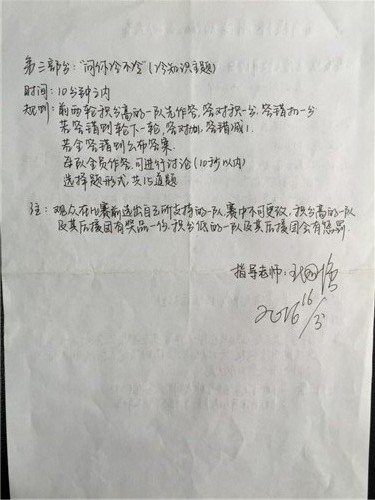 第三部分："问你冷不冷"(冷知识主题)
时间：10分钟之内
规则：前两轮积分高的一队先作答，答对积一分，答错扣一分
若答错则轮下一轮，答对加1，答错减1.
若全答错则公布答案.
每队全员作答，可进行讨论(10秒以内)
选择题形式，共15道题
注：观众在比赛前选出自己所支持的一队，赛中不可更改，积分高的一队
及其后援团有奖品一份，积分低的一队及其后援团会有惩罚
指导老师：
2016